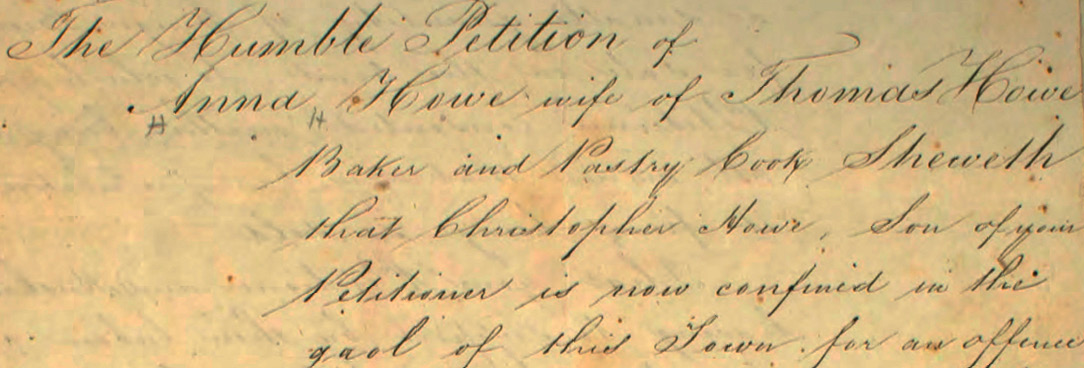 The Humble Petition of
Anna Howe wife of Thomas Howe
Baker and Pastry Cook Sheweth
that Christopher Howe, Son of your
Petitioner is now confined in the
gaol of this Town for an offence